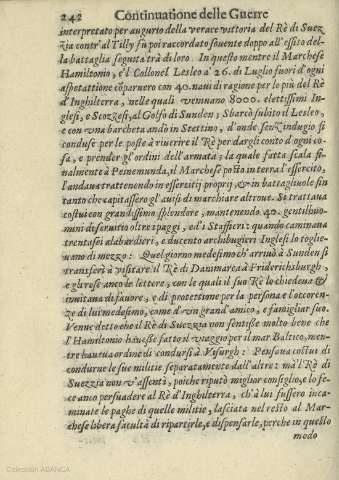 242 Continuatione delle Guerre
interpretato per augurio della verace vittoria del Rè di Suez
zia contr'al Tilly fù poi raccordato souente doppo all'essito del-
la battaglia seguita trà di loro. In questo mentre il Marchese
Hamiltonio, e'l Collonel Lesleo a' 26. di Luglio fuori d'ogni
aspettatione cōparuero con 40. naui di ragione per lo più del Rè
d'Inghilterra, nelle quali veniuano 8000. elettissimi In-
glesi, e Scozzesi, al Golfo di Sunden; Sbarcò subito il Lesleo,
e con vna barchetta andò in Stettino, d'onde senz'indugio si
condusse per le poste à riuerire il Rè per dargli conto d'ogni co-
sa, e prender gl'ordini dell'armata; la quale fatta scala fi-
nalmente à Peinemunda, il Marchese posto in terra l'essercito,
l'andaua trattenendo in essercitij proprij, & in battagliuole sin
tanto che capitassero gl'auisi di marchiare altroue. Si trattaua
costui con grandissimo splendore, mantenendo 40. gentilhuo-
mini di seruitio oltre i paggi, ed i Staffieri: quando caminaua
trentasei alabardieri, e ducento archibugieri Inglesi lo toglie-
uano di mezzo: Quel giorno medesimo ch'arriuò à Sunden si
transferì à visitare il Rè di Danimarca à Friderichsburgh,
e gli resè amco le lettere, con le quali il suo Rè lo chiedeua &
inuitaua di fauore, e di protettione per la persona e l'occoren-
ze di lui medesimo, come d'vn grand'amico, e famigliar suo.
Venne detto che il Rè di Suezzia non sentisse molto bene che
l'Hamiltonio hauesse fatto'l viaggio per il mar Baltico, men-
tre haueua ordine di condursi à Visurgh: Pensaua costui di
condurne le sue militie separatamente dall'altre: mà'l Rè di
Suezzia non v'assentì, poiche riputò miglior consiglio, e lo fe-
ce anco persuadere al Rè d'Inghilterra, ch'à lui fussero inca-
minate le paghe di quelle militie, lasciata nel resto al Mar-
chese libera facultà di ripartirle, e dispensarle, perche in questo
modo
Colección ABANCA